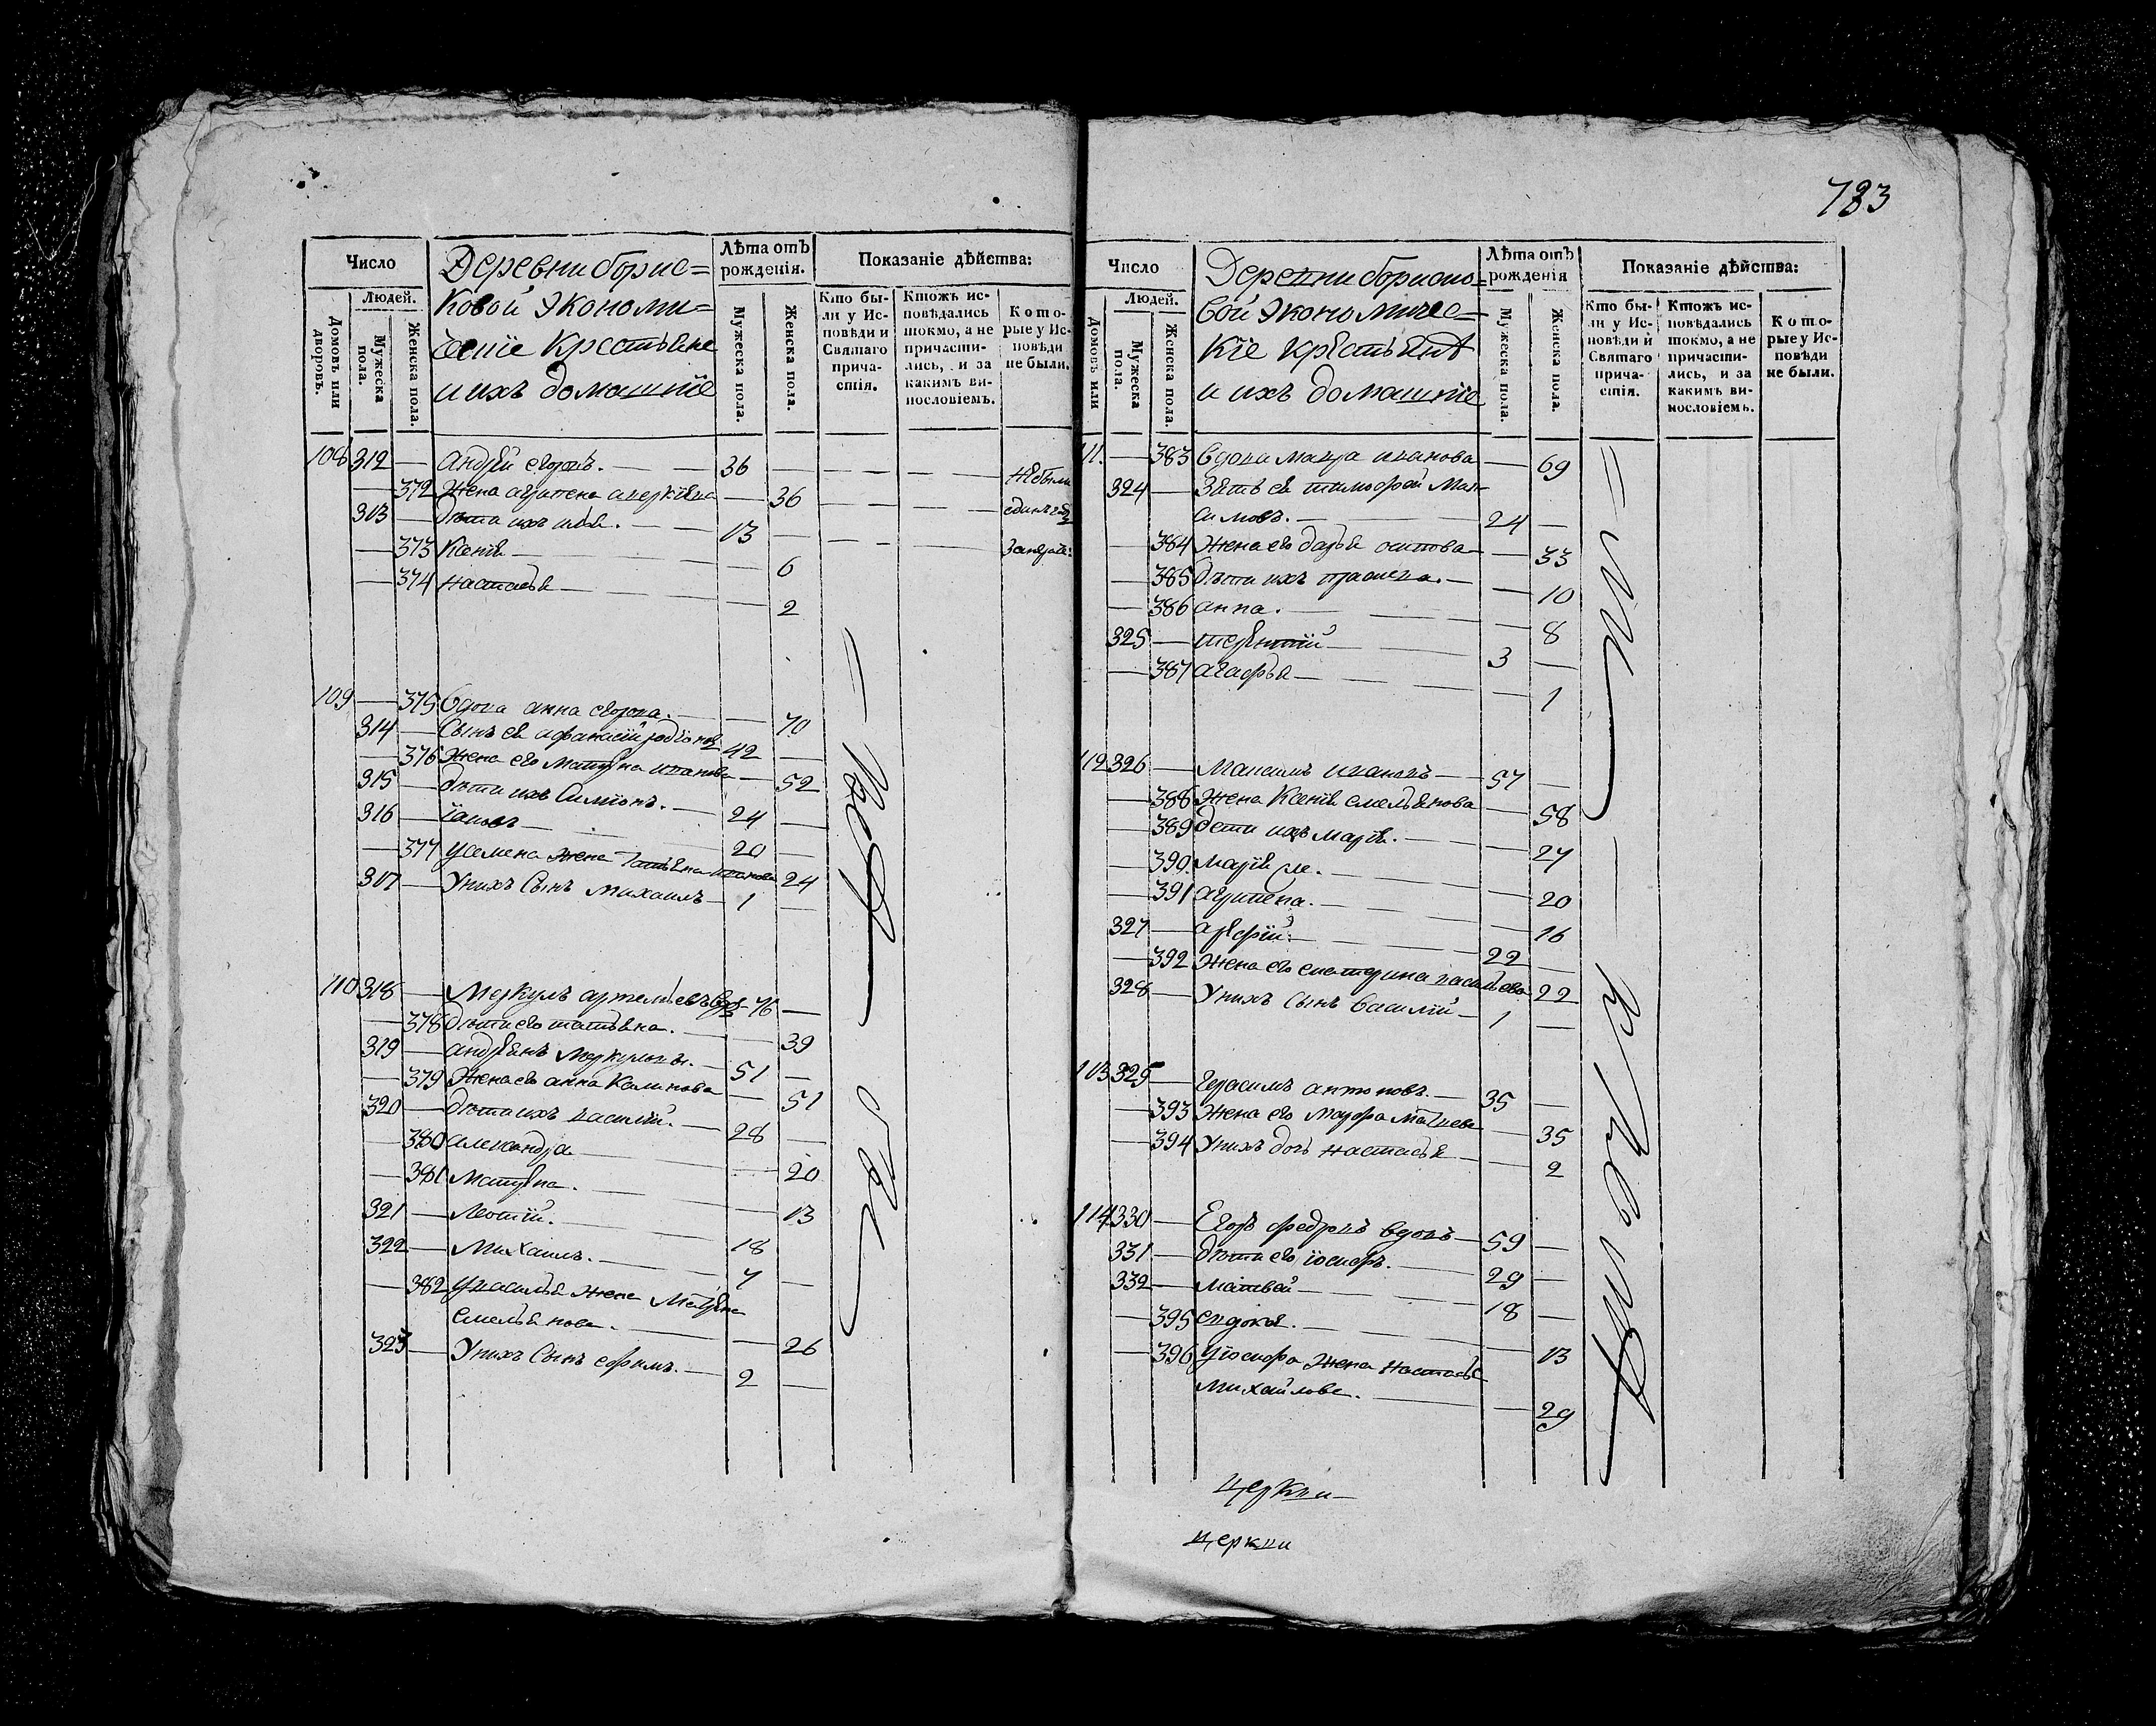 783
Число
Деревни борис=
Лѣта отъ рожденія.
Показаніе дѣйства:
Людей.
ковой экономи=
ческiе крестьяне
и ихъ домашнiе
Домовъ или дворовъ.
Мужеска пола.
Женска пола.
Мужеска пола.
Женска пола.
Кто бы-
ли у Ис-
повѣди и
Святаго
прича-
стія.
Ктожъ ис-
повѣдались
токмо, а не
причасти-
лись, и за
какимъ ви-
нословіемъ.
Кото-
рые у Ис-
повѣди
не были.
108 312 — андрей егоровъ. — — 36 — — — — не были
— 372 жена аграпена аверкiева — 36 — — —
313 — дѣти ихъ — — 13 — — — —
— 373 Ксенiя — — 6
— 374 настасья — — 2
109 — 375 вдова анна егорова. — — 70
314 — Сынъ ея афанасiй родiоновъ 42 —
— 376 жена его матрена иванова — 52
315 — дѣти ихъ Симiонъ. — 24 —
316 — iаковъ — 20 —
— 377 усемена жена татьяна иванова 24
317 — У нихъ Сынъ Михаилъ — 1 —
110 318 — Меркулъ артемьевъ вдовъ 76 —
— 378 дѣти его татьяна. — — 39
319 — андреянъ Меркуловъ. — 51 —
— 379 жена его анна Калинова — 51
320 — дѣти ихъ василiй. — 28 —
— 380 александра — — 20
— 381 Матрена. — — 13
321 — Леонтiй. — 18
322 — Михаилъ. — 7 —
— 382 у василья жена Матрена
емельянова. — — 26
323 — У нихъ Сынъ ефимъ. — 2 —
были
Число
Деревни бориско=
Лѣта отъ рожденія
Показаніе дѣйства:
Людей.
вой экономичес=
кiе крестьянѣ
и ихъ домашнiе
Домовъ или
Мужеска пола.
Женска пола.
Мужеска пола.
Женска пола.
Кто бы-
ли у Ис-
повѣди и
Святаго
прича-
стія.
Ктожъ ис-
повѣдались
токмо, а не
причасти-
лись, и за
какимъ ви-
нословіемъ.
Кото-
рые у Ис-
повѣди
не были.
111. — 383 вдова мавра иванова — 69
324 — Зять ея тимофей Мак-
симовъ. — 24 —
— 384 жена его дарья осипова — 33
— 385 дѣти ихъ прасковья. — — 10
— 386 анна. — — 8
325 — терентiй — 3 —
— 387 агафья — — 1
112 326 — Максимъ ивановъ — 57 —
— 388 жена Ксенiя емельянова — 58
— 389 дети ихъ марiя. — — 27
— 390. марiя же. — — 20
— 391 аграпена. — — 16
327 — арефiй: — 22 —
— 392 жена его екатерина васильева 22
328 — У нихъ Сынъ василiй — 1 —
113 329 — герасимъ антоновъ. — 35 —
— 393 жена его мавра матвева — 35
— 394 У нихъ дочь настасья — — 2
114 330 — Егоръ федоровъ вдовъ — 59 —
331 — дѣти его iосифъ. — 29 —
332 — матвей — 18 —
— 395 евдокiя. — — 13
— 396 у iосифа жена настасья
михайлова. — — 29
были
церкви
церкви